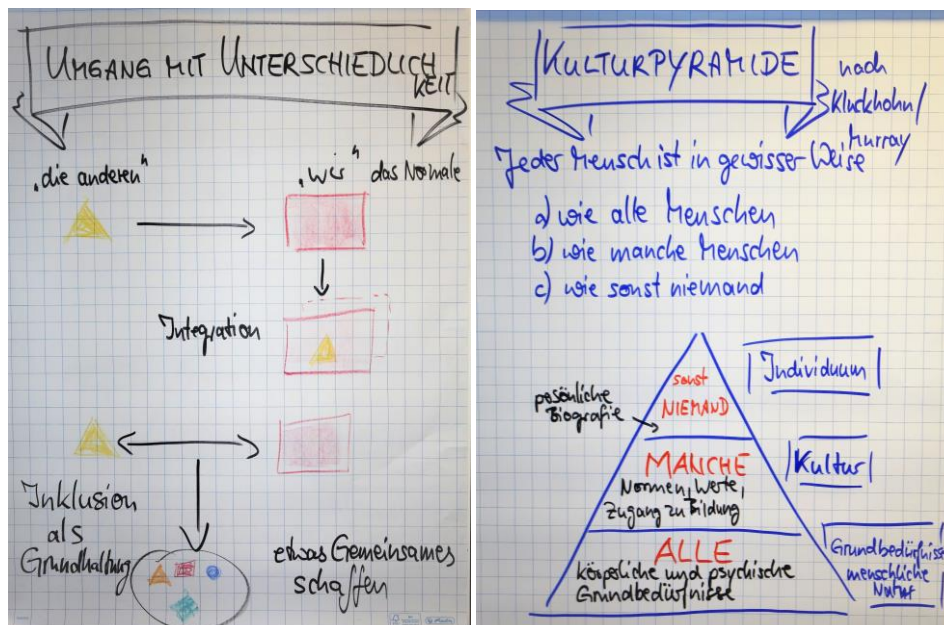 UMGANG MIT UNTERSCHIEDLICH
KEIT
„die anderen“
„wir“ das Normale
Integration
Inklusion
als
Grundhaltung
etwas Gemeinsames
schaffen
KULTURPYRAMIDE
nach
Kluckhohn/
Murray
Jeder Mensch ist in gewisser Weise
a) wie alle Menschen
b) wie manche Menschen
c) wie sonst niemand
sonst
NIEMAND
Individuum
pesönliche
Biografie
MANCHE
Normen, Werte,
Zugang zu Bildung
Kultur
ALLE
körperliche und psychische
Grundbedürfnisse
Grundbedürfnisse
menschliche
Natur